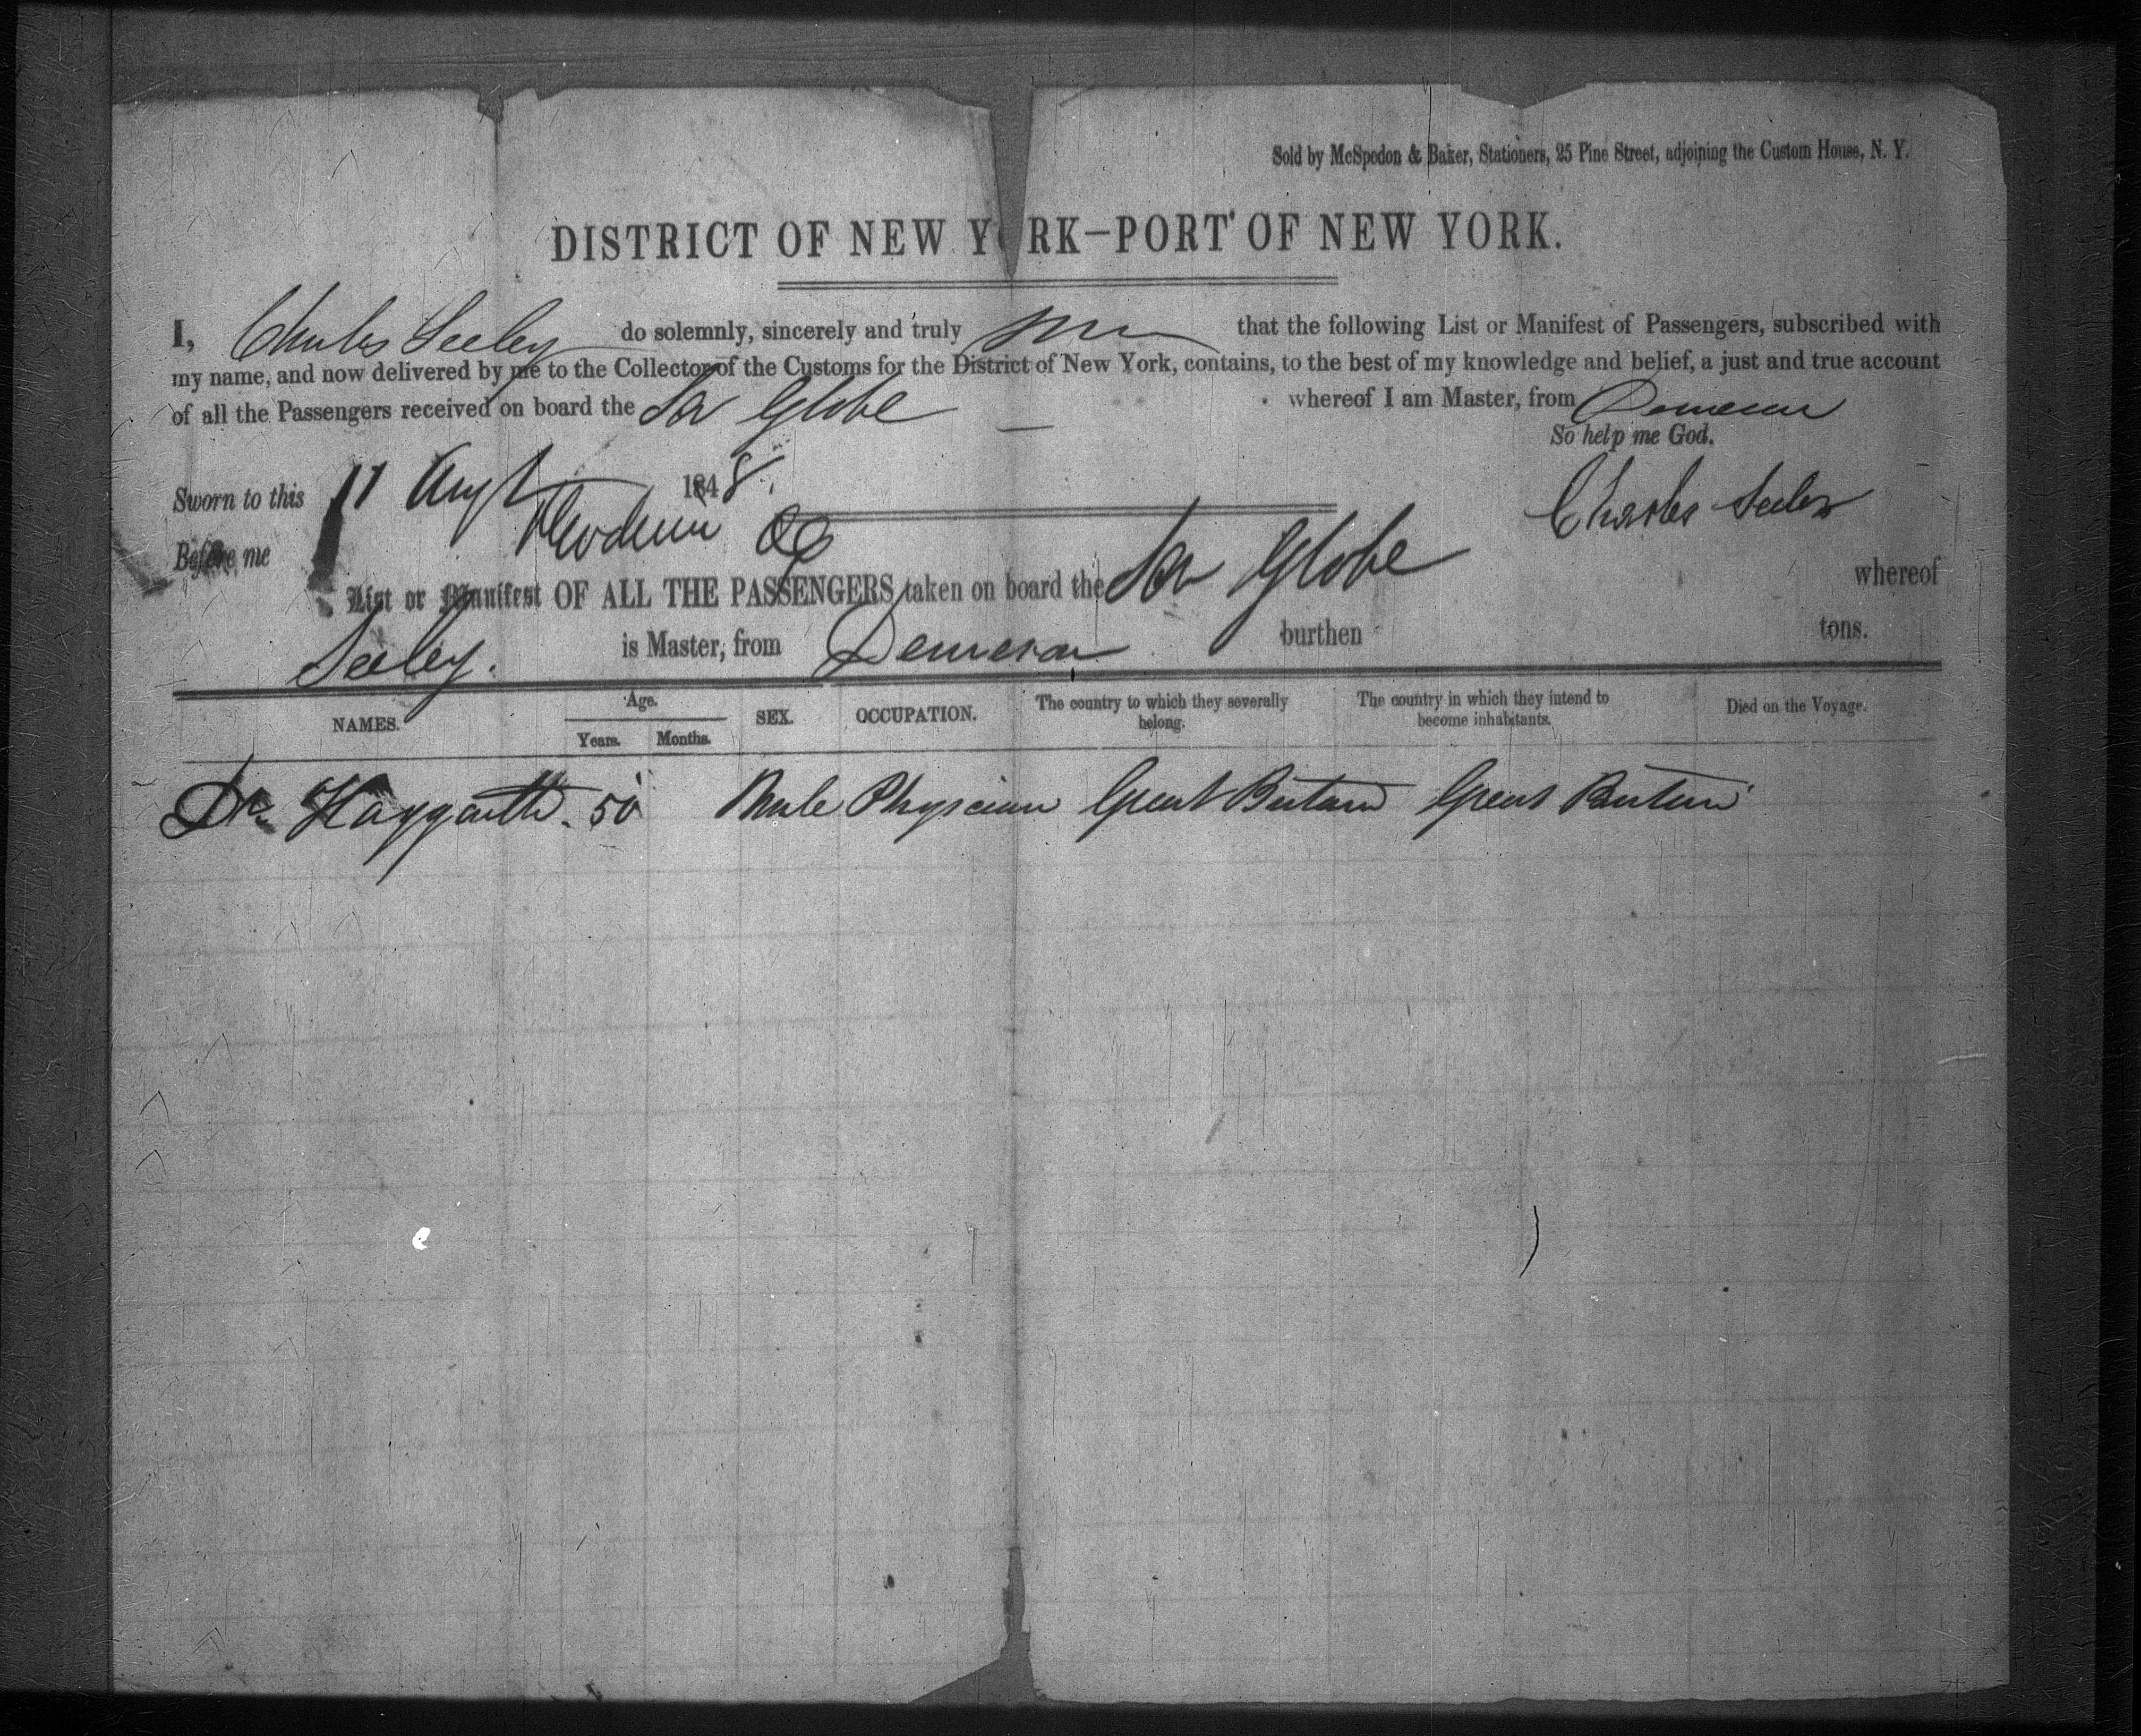 Sold by McSpedon & Baker, Stationers, 25 Pine Street, adjoining the Custom House, N. Y.
DISTRICT OF NEW YORK—PORT OF NEW YORK.
I, Charles Seeley do solemnly, sincerely and truly that the following List or Manifest of Passengers, subscribed with
my name, and now delivered by me to the Collector of the Customs for the District of New York, contains, to the best of my knowledge and belief, a just and true account
of all the Passengers received on board the Globe whereof I am Master, from Demerara
So help me God.
Sworn to this 11 Augt 1848.
Charles Seeley
Before me
List or Manifest OF ALL THE PASSENGERS taken on board the Globe whereof
Seeley. is Master, from Demerara burthen tons.
NAMES. Age. Years. Months. SEX. OCCUPATION. The country to which they severally belong. The country in which they intend to become inhabitants. Died on the Voyage.
Dr. Haygarth. 50 Male Physician Great Britain Great Britain